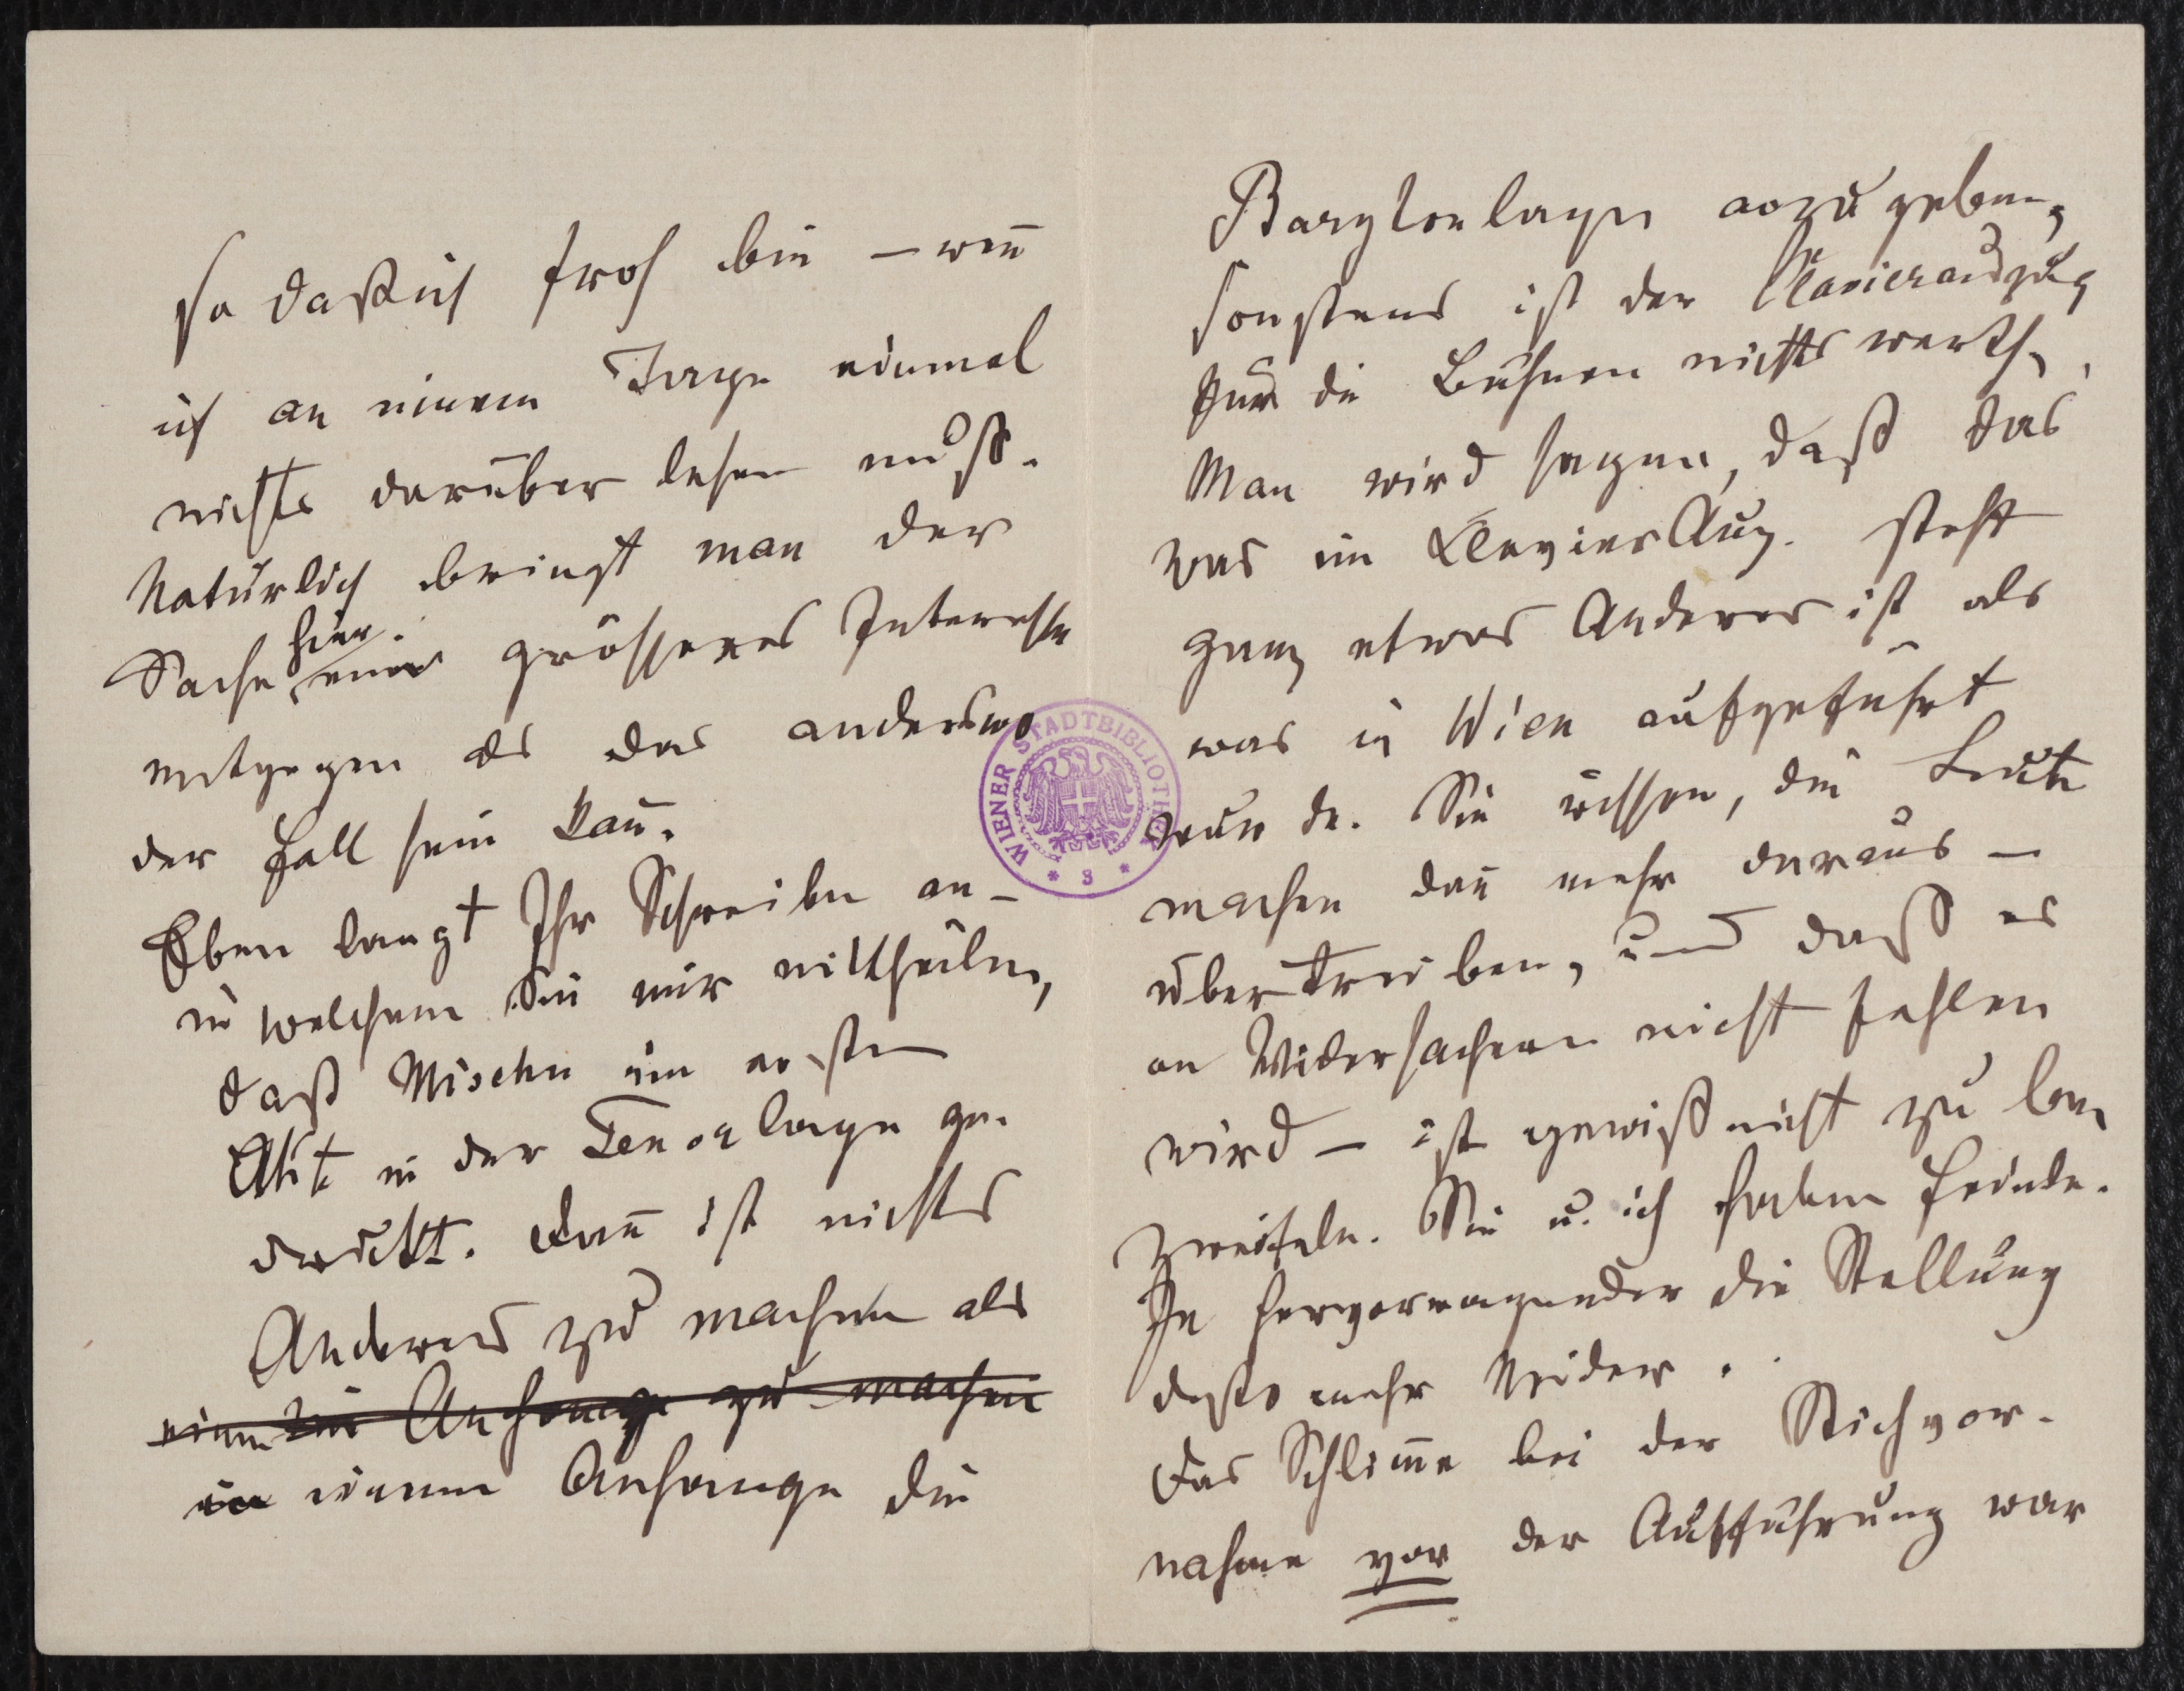 so daß ich froh bin – wen̄
ich an einem Tage einmal
nichts darüber lesen muß.
Natürlich bringt man der
Sache hier ein grösseres Interesse
entgegen als das anderswo
der Fall sein kan̄.
Eben langt Ihr Schreiben an –
in welchem Sie mir mittheilen,
daß Mischu im ersten
Akt in der Tenorlage ge-
druckt. Dan̄ ist nichts
Anderes zu machen als
Anhange zu machen
in einem Anhange die
Barytonlage anzugeben,
sonstens ist der Klavierauszug
für die Bühnen nichts werth,
Man wird sagen, daß das
was im KlavierAuz. steht
ganz etwas Anderes ist als
was in Wien aufgeführt
wurde. Sie wissen, die Leute
machen dan̄ mehr daraus –
übertreiben, und daß es
an Widersachern nicht fehlen
wird – ist gewiß nicht zu be-
zweifeln. Sie u. ich haben Feinde.
Je hervorragender die Stellung
desto mehr Neider.
Das Schlim̄e bei der Stichvor-
nahme vor der Aufführung war
WIENER STADTBIBLIOTHEK